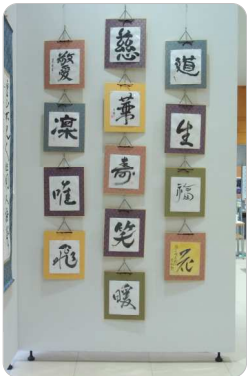 慶
凜
唯
飛
慈
華
寿
笑
暖
道
生
福
花